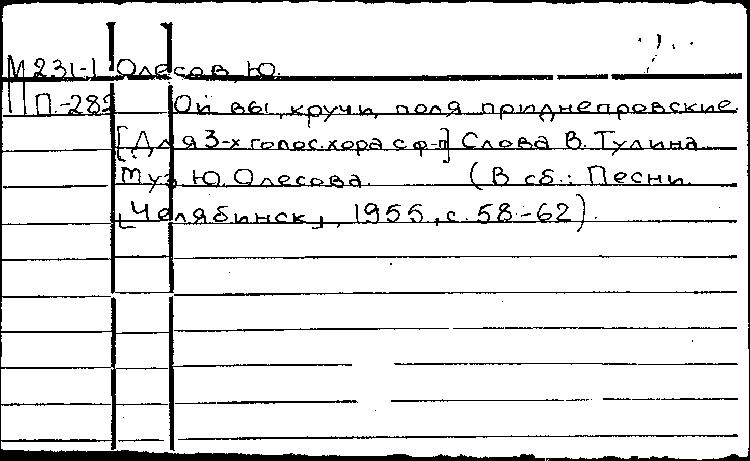 М231-1 Олесов, Ю.
П-282 Ой вы, кручи, поля приднепровские
[Для 3-х голос.хора с ф-п] Слова В. Тулина
Муз. Ю. Олесова. (В сб.: Песни.
[Челябинск], 1955, с. 58-62).